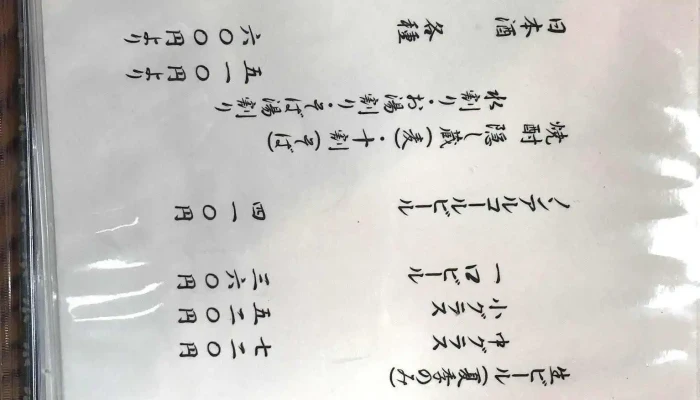 生ビール(夏季のみ)
中グラス 七二〇円
小グラス 五二〇円
一口ビール 三六〇円
ノンアルコールビール 四一〇円
焼酎 隠し蔵(麦)・十割(そば)
水割り・お湯割り・そば湯割り
五一〇円より
日本酒 各種 六〇〇円より